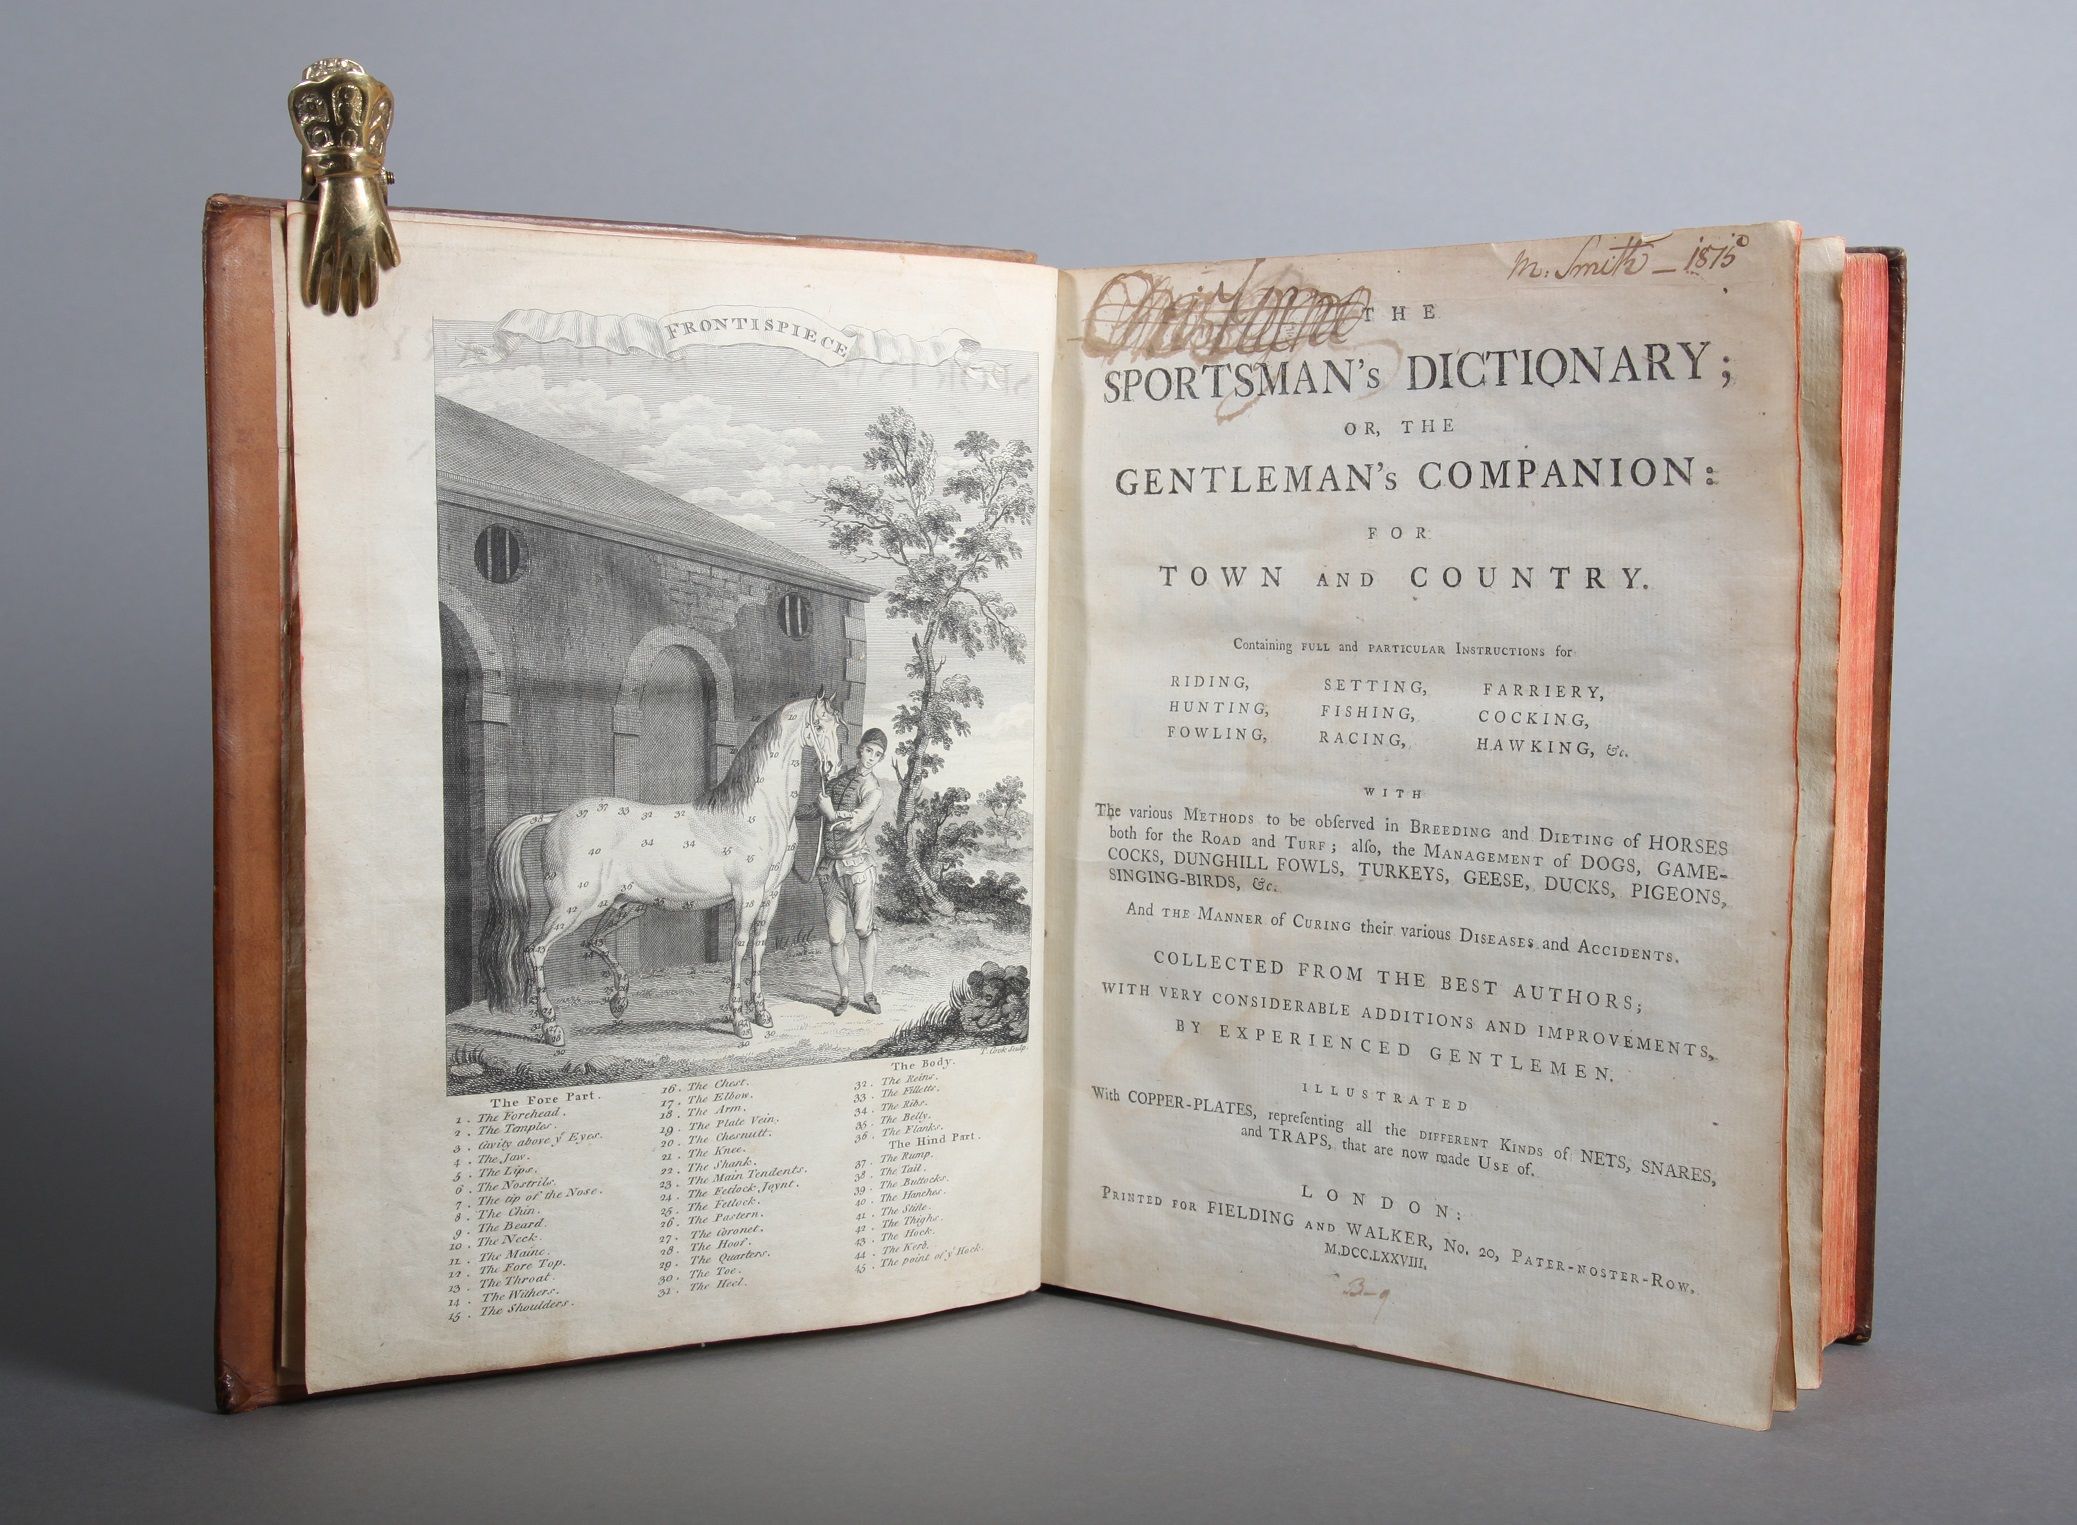 FRONTISPIECE
T. Cook Sculp.
The Fore Part.
1. The Forehead.
2. The Temples.
3. Cavity above yᵉ Eyes.
4. The Jaw.
5. The Lips.
6. The Nostrils.
7. The tip of the Nose.
8. The Chin.
9. The Beard.
10. The Neck.
11. The Maine.
12. The Fore Top.
13. The Throat.
14. The Withers.
15. The Shoulders.
16. The Chest.
17. The Elbow.
18. The Arm.
19. The Plate Vein.
20. The Chesnutt.
21. The Knee.
22. The Shank.
23. The Main Tendents.
24. The Fetlock Joynt.
25. The Fetlock.
26. The Pastern.
27. The Coronet.
28. The Hoof.
29. The Quarters.
30. The Toe.
31. The Heel.
The Body.
32. The Reins.
33. The Filletts.
34. The Ribs.
35. The Belly.
36. The Flanks.
The Hind Part.
37. The Rump.
38. The Tail.
39. The Buttocks.
40. The Hanches.
41. The Stifle.
42. The Thighs.
43. The Hock.
44. The Kerb.
45. The point of yᵉ Hock.
M. Smith – 1875
THE
SPORTSMAN's DICTIONARY;
OR, THE
GENTLEMAN's COMPANION:
FOR
TOWN AND COUNTRY.
Containing FULL and PARTICULAR INSTRUCTIONS for
RIDING, SETTING, FARRIERY,
HUNTING, FISHING, COCKING,
FOWLING, RACING, HAWKING, &c.
WITH
The various METHODS to be obſerved in BREEDING and DIETING of HORSES
both for the ROAD and TURF; alſo, the MANAGEMENT of DOGS, GAME-
COCKS, DUNGHILL FOWLS, TURKEYS, GEESE, DUCKS, PIGEONS,
SINGING-BIRDS, &c.
And THE MANNER of CURING their various DISEASES and ACCIDENTS.
COLLECTED FROM THE BEST AUTHORS;
WITH VERY CONSIDERABLE ADDITIONS AND IMPROVEMENTS,
BY EXPERIENCED GENTLEMEN.
ILLUSTRATED
With COPPER-PLATES, repreſenting all the DIFFERENT KINDS of NETS, SNARES,
and TRAPS, that are now made USE of.
LONDON:
PRINTED FOR FIELDING AND WALKER, No. 20, PATER-NOSTER-ROW.
M.DCC.LXXVIII.